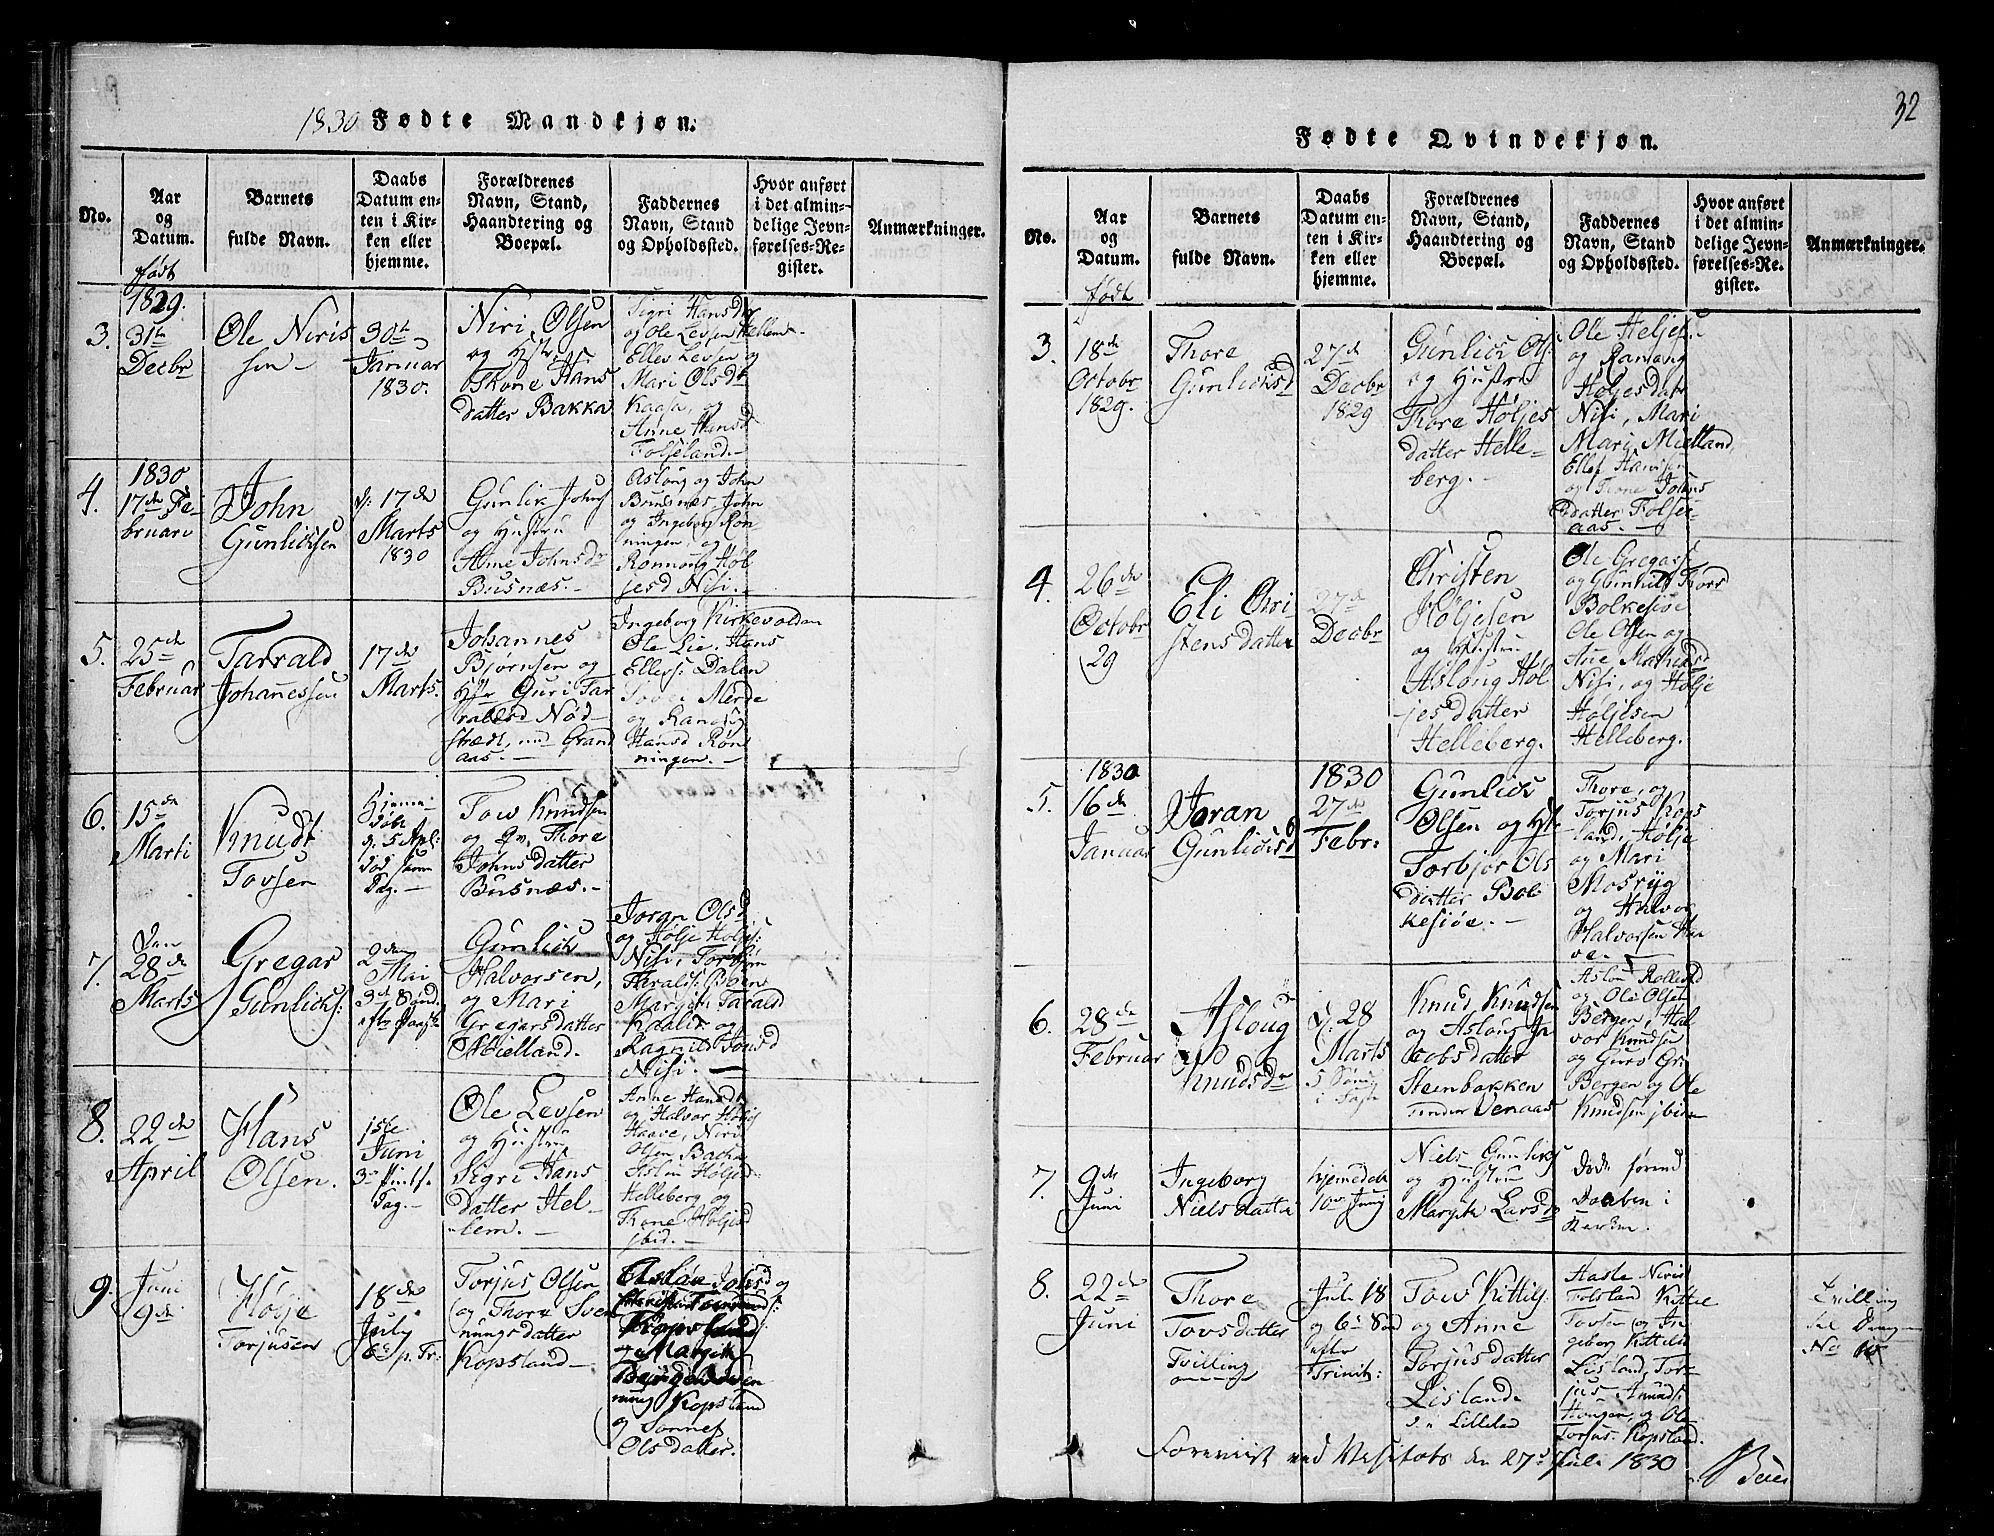 32
1830 Fødte Mandkjøn.
No.
Aar
og
Datum.
Barnets
fulde Navn.
Daabs
Datum en-
ten i Kir-
ken eller
hjemme.
Forældrenes
Navn, Stand,
Haandtering og
Boepæl.
Faddernes
Navn, Stand
og Opholdssted.
Hvor anført
i det almin-
delige Jevn-
førelses-Re-
gister.
Anmærkninger.
født
1829.
3.
31te
Decbr
Ole Niris
sen
30te
Januar
1830.
Niri Olsen
og Hstr
Thone Hans
datter Bakka
Sigri Hansdr
og Ole Levsen Hellem
Ellev Levsen og
Mari Olsdr
Kaasa, og
Anne Hansd
Folseland.
4.
1830
17de Fe-
bruari
John
Gunlichsen
d. 17de
Marts
1830
Gunlik Johns
og Hustru
Anne Johnsdr
Busnæs.
Aslong og John
Busnæs, John
og Ingebor Røn
ningen og
Ronnong Høl
jesd Nisi.
5.
25de
Februar
Tarrald
Johanessen
17de
Marts.
Johannes
Bjørnsen og
Hstr Guri Tar
ralsd Nød-
strædt, Grand
aas.
Ingeborg Kirkevolden
Ole Lie, Hans
Ellefs: Dalen
Merde
og
Hansd Røn
ningen.
6.
15de
Marti
Knudt
Tovsen
Hjemme-
døbt
5 April
død samme
Dag.
Tov Knudsen
og Qv. Thore
Johnsdatter
Busnæs.
7.
Den
28de
Marts
Gregar
Gunlichs:
2den
Mai
3d Sønd.
efter Paaske
Gunlich
Halvorsen,
og Mari
Gregarsdatter
Mielland.
Joran Olsd
og Hølje Høljes:
Nisi, Torbjør
Tharalds: Boen
Margit Tarald
og
Ragnild Tovsd
Nisi.
8.
22de
April
Hans
Olsen.
1ste
Juni
3die Pintse
Dag.
Ole Levsen
og Hustru
Sigri Hans
datter Hel-
lem.
Anne Hansdr
og Halvor Høljes
Haave, Niri
Olsen Backa
Aslau Høljed
Helleberg og
Thone Høljed
ibid.
9.
Juni
9de
Hølje
Torjusen
18de
July
6te p. Tr:
Torjus Olsen
og Thore Sven
nungsdatter
Kopsland
og
Kopsland
og Margit
Kopsland
og Sonnef
Olsdatter.
Fødte Qvindekjøn.
No.
Aar
og
Datum.
Barnets
fulde Navn.
Daabs
Datum en-
ten i Kir-
ken eller
hjemme.
Forældrenes
Navn, Stand,
Haandtering og
Boepæl.
Faddernes
Navn, Stand
og Opholdssted.
Hvor anført
i det almin-
delige Jevn-
førelses-Re-
gister.
Anmærkninger.
født
3.
18de
Octobr
1829.
Thore
Gunlichsd
27de
Decbr
1829
Gunlich Ols
og Hustru
Thore Høljes
datter Helle-
berg.
Ole Heljes
og Ranong
Høljesdatr
Nisi, Mari
Mari Mielland,
Ellef Hansen
og Tone Johns
datter Folser-
aas.
4.
26de
Octobr
29
Eli Chri
stensdatter
27de
Decbr
Christen
Høljesen
og Hustru
Aslong Høl
jesdatter
Helleberg.
Ole Gregars
og Gunhild Torr
Bolkesiøe
Ole Olsen og
Ane Mathisd
Nisi, og Hølje
Høljesen
Helleberg.
5.
1830
16de
Januar
Joran
Gunlichsd
1830
27de
Febr:
Gunlich
Olsen og Hst
Torbjør Ols
datter Bol
kesiøe.
Thore, og
Torjus Kops
land, Hølje
og Mari
Mosryg
og Halvor
Halvorsen Haa
ve.
6.
28de
Februar
Asloug
Knudsdr
d. 28
Marts
5 Sønd
i Faste
Knud Knudsen
og Aslong Ja
cobsdatter
Steenbakken
under Venaas
og Ole Olsen
Bergen, Hal
vor Knudsen
og Guro
Bergen og Ole
Knudsen ibid
7.
9de
Juni
Ingeborg
Nielsdatter
hjemedøbt
10de Juny
Niels Gunlichs
og Hustru
Margit Larsdr
Døde førend
Daaben i
Kirken.
8.
22de
Juni
Thore
Tovsdatter
Tvilling
Juli 18
6te Sønd
efter
Trinit:
Tov Kittils:
og Anne
Torjusdatter
Lisland
Aasle Niris
Folsland Kittil
Tovsen og In
geborg Kittilsd
Lisland, Tor-
jus Amunds:
Haugen, og Ole
Torjus: Kopsland.
Tvilling
til Dreng
No 10
Foreviist ved Visitats den 27de Juli 1830